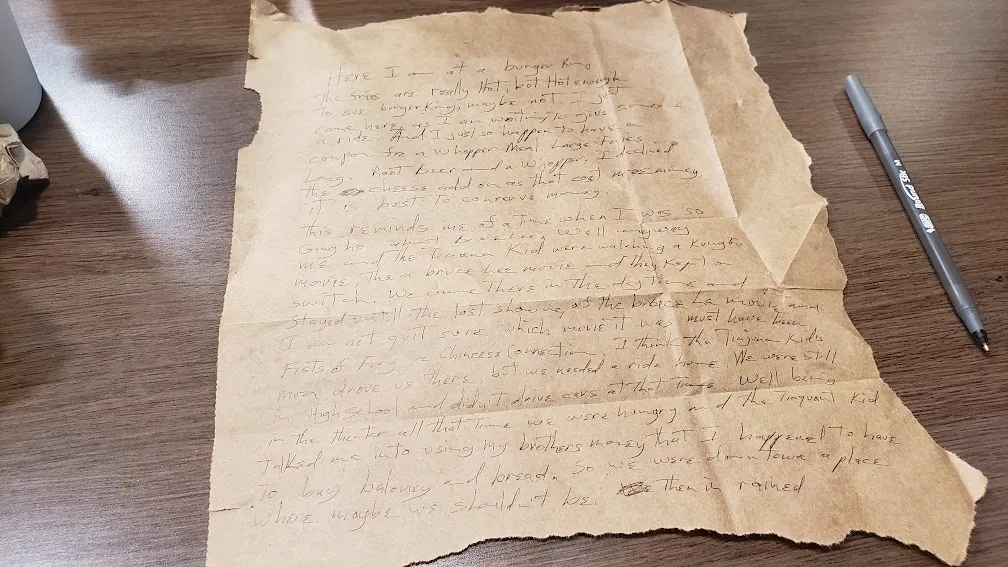 Here I am at a burger King
The fries are really Hot, but Hot enough
to sue burger King, maybe not I Just
came here as I am waiting to give someone
a ride. And I just so happen to have a
coupon for a Whopper Meal Large Fries
Larg Root beer and a Whopper. I declined
the cheese add on as that cost more money.
it is best to conserve money.
This reminds me of a Time when I was so
Gung ho about bruce Lee, Well anyway
me and the Kid were watching a Kungfu
movie, The a bruce Lee movie and they kept on
switch. We came there in the day time and
stayed untill the last showing of the bruce Le movie and
I am not quit sure which movie it was must have been
Fists of Fury or Chinese Connection I think the Kid's
mom drove us there, but we needed a ride home. We were still
in High school and didn't drive cars at that time Well being
in the theater all that time we were hungry and the Kid
Talked me into using my brothers money that I happened to have
To buy baloney and bread. So we were down town a place
where maybe we shouldn't be. then it rained
BIC Round Stic M